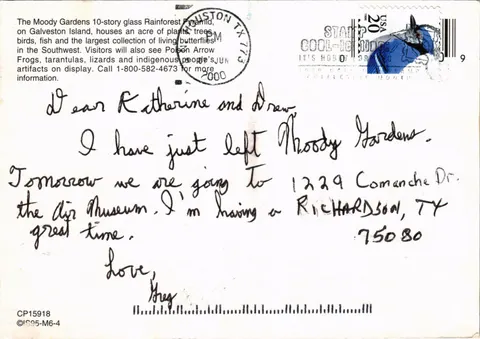 The Moody Gardens 10-story glass Rainforest Pyramid,
on Galveston Island, houses an acre of plants, trees,
birds, fish and the largest collection of living butterflies
in the Southwest. Visitors will also see Poison Arrow
Frogs, tarantulas, lizards and indigenous people's
artifacts on display. Call 1-800-582-4673 for more
information.
HOUSTON TX 773
PM
JUN
2000
USA
20
9
Dear Katherine and Drew,
I have just left Moody Gardens.
Tomorrow we are going to
the Air Museum. I'm having a
great time.
Love,
Greg
1229 Comanche Dr.
RICHARDSON, TX
75080
CP15918